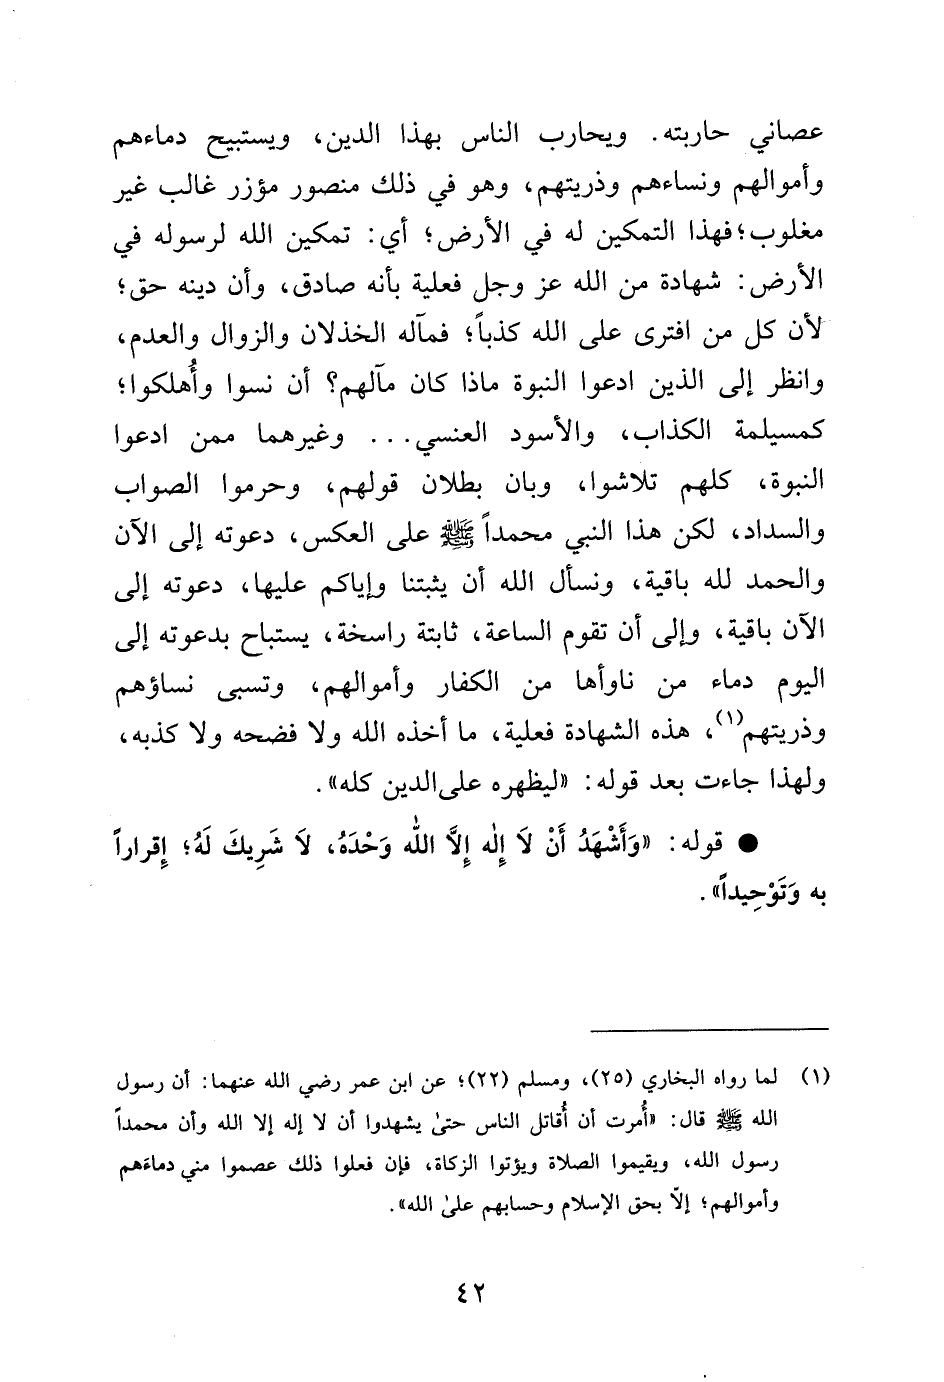 عصاني حاربته. ويحارب الناس بهذا الدين، ويستبيح دماءهم
وأموالهم ونساءهم وذريتهم، وهو في ذلك منصور مؤزر غالب غير
مغلوب؛ فهذا التمكين له في الأرض؛ أي: تمكين الله لرسوله في
الأرض: شهادة من الله عز وجل فعلية بأنه صادق، وأن دينه حق؛
لأن كل من افترى على الله كذباً؛ فمآله الخذلان والزوال والعدم،
وانظر إلى الذين ادعوا النبوة ماذا كان مآلهم؟ أن نسوا وأُهلكوا؛
كمسيلمة الكذاب، والأسود العنسي... وغيرهما ممن ادعوا
النبوة، كلهم تلاشوا، وبان بطلان قولهم، وحرموا الصواب
والسداد، لكن هذا النبي محمداً ﷺ على العكس، دعوته إلى الآن
والحمد لله باقية، ونسأل الله أن يثبتنا وإياكم عليها، دعوته إلى
الآن باقية، وإلى أن تقوم الساعة، ثابتة راسخة، يستباح بدعوته إلى
اليوم دماء من ناوأها من الكفار وأموالهم، وتسبى نساؤهم
وذريتهم(١)، هذه الشهادة فعلية، ما أخذه الله ولا فضحه ولا كذبه،
ولهذا جاءت بعد قوله: «ليظهره على الدين كله».
● قوله: «وَأَشْهَدُ أَنْ لاَ إِلٰه إِلاَّ اللّٰه وَحْدَهُ، لاَ شَرِيكَ لَهُ؛ إِقراراً
به وَتَوْحِيداً».
(١) لما رواه البخاري (٢٥)، ومسلم (٢٢)؛ عن ابن عمر رضي الله عنهما: أن رسول
الله ﷺ قال: «أُمرت أن أُقاتل الناس حتىٰ يشهدوا أن لا إله إلا الله وأن محمداً
رسول الله، ويقيموا الصلاة ويؤتوا الزكاة، فإن فعلوا ذلك عصموا مني دماءَهم
وأموالهم؛ إلاّ بحق الإسلام وحسابهم علىٰ الله».
٤٢